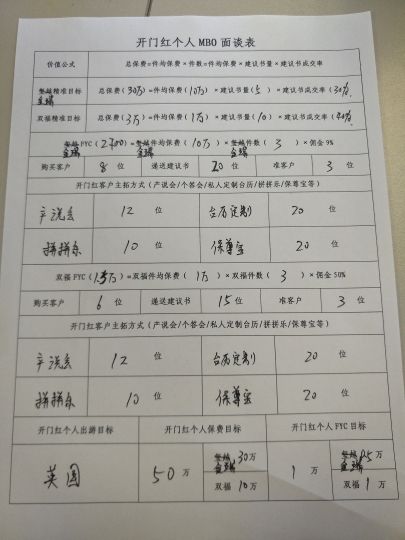 开门红个人 MBO 面谈表
价值公式 总保费=件均保费×件数=件均保费×建议书量×建议书成交率
金瑞精准目标 总保费(30万)=件均保费(10万)×建议书量(5)×建议书成交率(30%)
双福精准目标 总保费(3万)=件均保费(1万)×建议书量(10)×建议书成交率
金瑞 FYC(2700)=金瑞件均保费(10万)×金瑞件数(3)×佣金 9%
购买客户 8 位 递送建议书 20 位 准客户 3 位
开门红客户主拓方式(产说会/个答会/私人定制台历/拼拼乐/保尊宝等)
产说会 12 位 台历定制 20 位
拼拼乐 10 位 保尊宝 20 位
双福 FYC(1.5万)=双福件均保费(1万)×双福件数(3)×佣金 50%
购买客户 6 位 递送建议书 15 位 准客户 3 位
开门红客户主拓方式(产说会/个答会/私人定制台历/拼拼乐/保尊宝等)
产说会 12 位 台历定制 20 位
拼拼乐 10 位 保尊宝 20 位
开门红个人出游目标 开门红个人保费目标 开门红个人 FYC 目标
英国 50 万 金瑞 30 万 1 万 金瑞 0.5 万
双福 10 万 双福 1 万